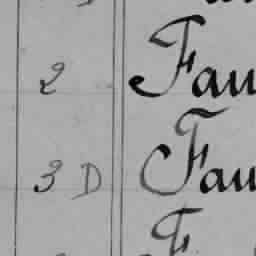 2 Fau
3 D Fau